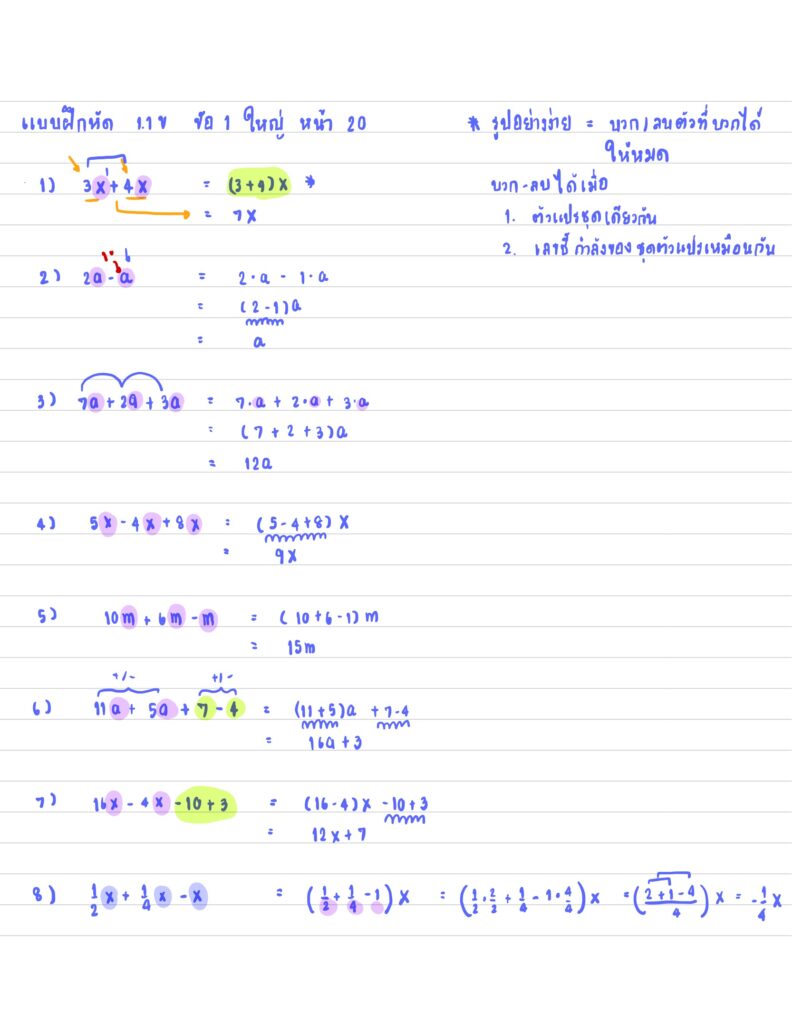 แบบฝึกหัด 1.1 ข ข้อ 1 ใหญ่ หน้า 20
* รูปอย่างง่าย = บวก/ลบตัวที่บวกได้
ให้หมด
บวก-ลบ ได้ เมื่อ
1. ตัวแปรชุดเดียวกัน
2. เลขชี้กำลังของ ชุดตัวแปรเหมือนกัน
1) 3x + 4x = (3+4)x *
= 7x
2) 2a - a = 2·a - 1·a
= (2-1)a
= a
3) 7a + 2a + 3a = 7·a + 2·a + 3·a
= (7 + 2 + 3)a
= 12a
4) 5x - 4x + 8x = (5-4+8)x
= 9x
5) 10m + 6m - m = (10+6-1)m
= 15m
+/- +/-
6) 11a + 5a + 7 - 4 = (11+5)a + 7-4
= 16a+3
7) 16x - 4x - 10 + 3 = (16-4)x - 10+3
= 12x+7
8) 1/2 x + 1/4 x - x = (1/2 + 1/4 - 1)x = (1/2·2/2 + 1/4 - 1·4/4)x = ((2+1-4)/4)x = -1/4 x